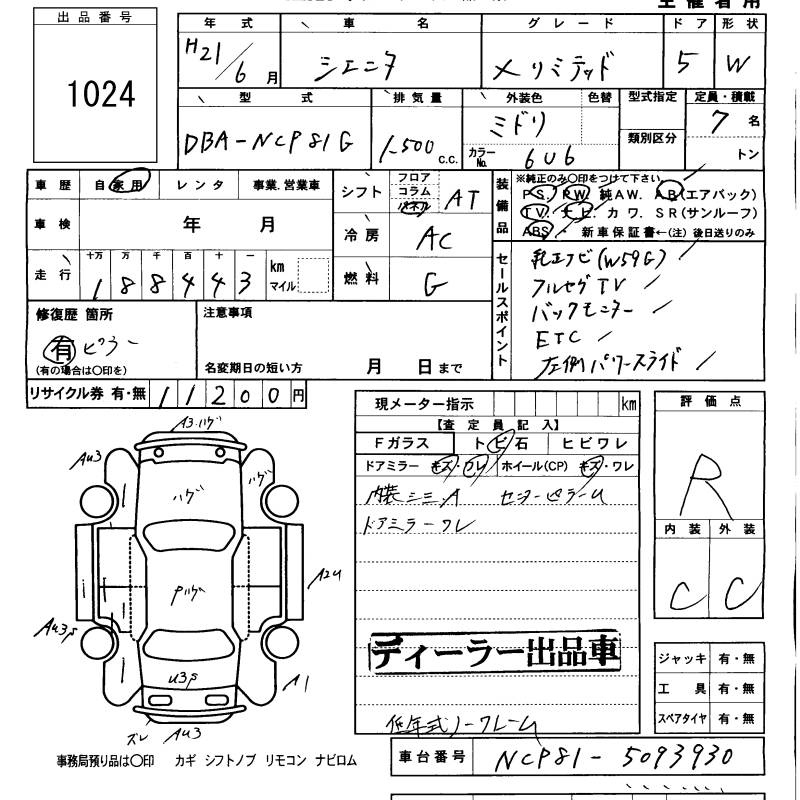 主催者用
出品番号
1024
年式 車名 グレード ドア 形状
H21/6月 シエンタ メ リミテッド 5 W
型式 排気量 外装色 色替 型式指定 定員・積載
DBA-NCP81G 1500 c.c. ミドリ 7名
カラーNo. 6U6 類別区分 トン
車歴 自家用 レンタ 事業.営業車
車検 年 月
走行 十万 万 千 百 十 一
188443 km マイル
シフト フロア コラム パネル AT
冷房 AC
燃料 G
装備品 ※純正のみ○印をつけて下さい。
PS. PW. 純AW. AB(エアバック)
TV. ナビ. カワ. SR(サンルーフ)
ABS ・ 新車保証書←(注) 後日送りのみ
セールスポイント
乳エフビ(W59G)
フルセグTV
バックモニター
ETC
左側パワースライド
修復歴 箇所
有 ピラー
(有の場合は○印を)
注意事項
名変期日の短い方 月 日まで
リサイクル券 有・無 11200円
現メーター指示 km
【査定員記入】
Fガラス トビ石 ヒビワレ
ドアミラー キズ・ワレ ホイール(CP) キズ・ワレ
内装シミ.A センターピラーム
ドアミラーワレ
ディーラー出品車
低年式ノークレーム
評価点
R
内装 外装
C C
ジャッキ 有・無
工具 有・無
スペアタイヤ 有・無
A3.ハゲ
AU3
ハゲ
ハゲ
Pハゲ
A2U
AU3P
U3P
A1
ズレ
AU3
事務局預り品は○印 カギ シフトノブ リモコン ナビロム
車台番号 NCP81-5093930